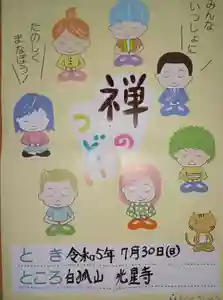 みんな
いっしょに
たのしく
まなぼう!
禅
の
つどい
とき 令和5年 7月30日(日)
ところ 白狐山 光星寺